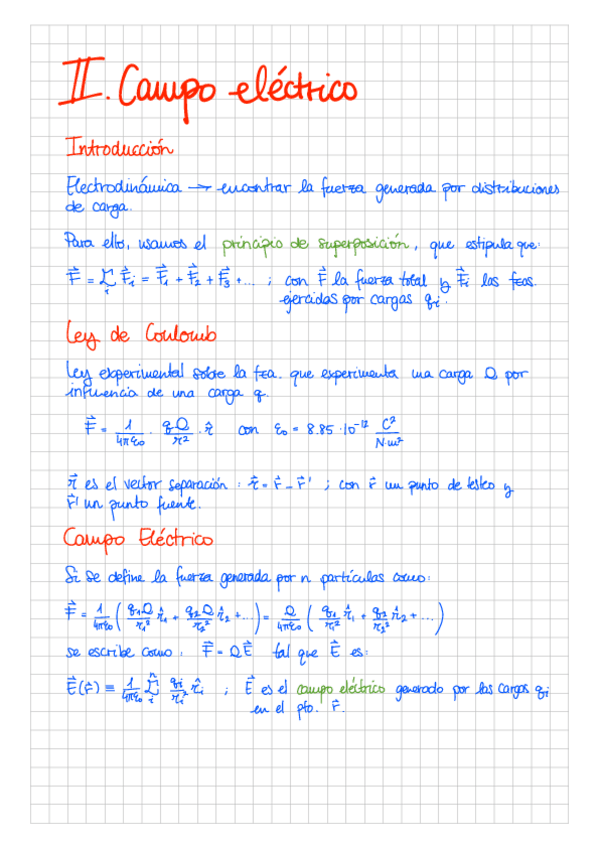 II. Campo eléctrico
Introducción
Electrodinámica → encontrar la fuerza generada por distribuciones
de carga.
Para ello, usamos el principio de superposición, que estipula que:
F⃗ = Σᵢ F⃗ᵢ = F⃗₁ + F⃗₂ + F⃗₃ + ... ; con F⃗ la fuerza total y F⃗ᵢ las fzas.
ejercidas por cargas qᵢ.
Ley de Coulomb
Ley experimental sobre la fza. que experimenta una carga Q por
influencia de una carga q.
F⃗ = 1/(4πε₀) · qQ/𝓇² · 𝓇̂ con ε₀ = 8.85·10⁻¹² C²/(N·m²)
𝓇⃗ es el vector separación : 𝓇⃗ = r⃗ - r⃗' ; con r⃗ un punto de testeo y
r⃗' un punto fuente.
Campo Eléctrico
Si se define la fuerza generada por n partículas como:
F⃗ = 1/(4πε₀) ( q₁Q/𝓇₁² 𝓇̂₁ + q₂Q/𝓇₂² 𝓇̂₂ + ... ) = Q/(4πε₀) ( q₁/𝓇₁² 𝓇̂₁ + q₂/𝓇₂² 𝓇̂₂ + ... )
se escribe como : F⃗ = QE⃗ tal que E⃗ es:
E⃗(r⃗) ≡ 1/(4πε₀) Σᵢⁿ qᵢ/𝓇ᵢ² 𝓇̂ᵢ ; E⃗ es el campo eléctrico generado por las cargas qᵢ
en el pto. r⃗.